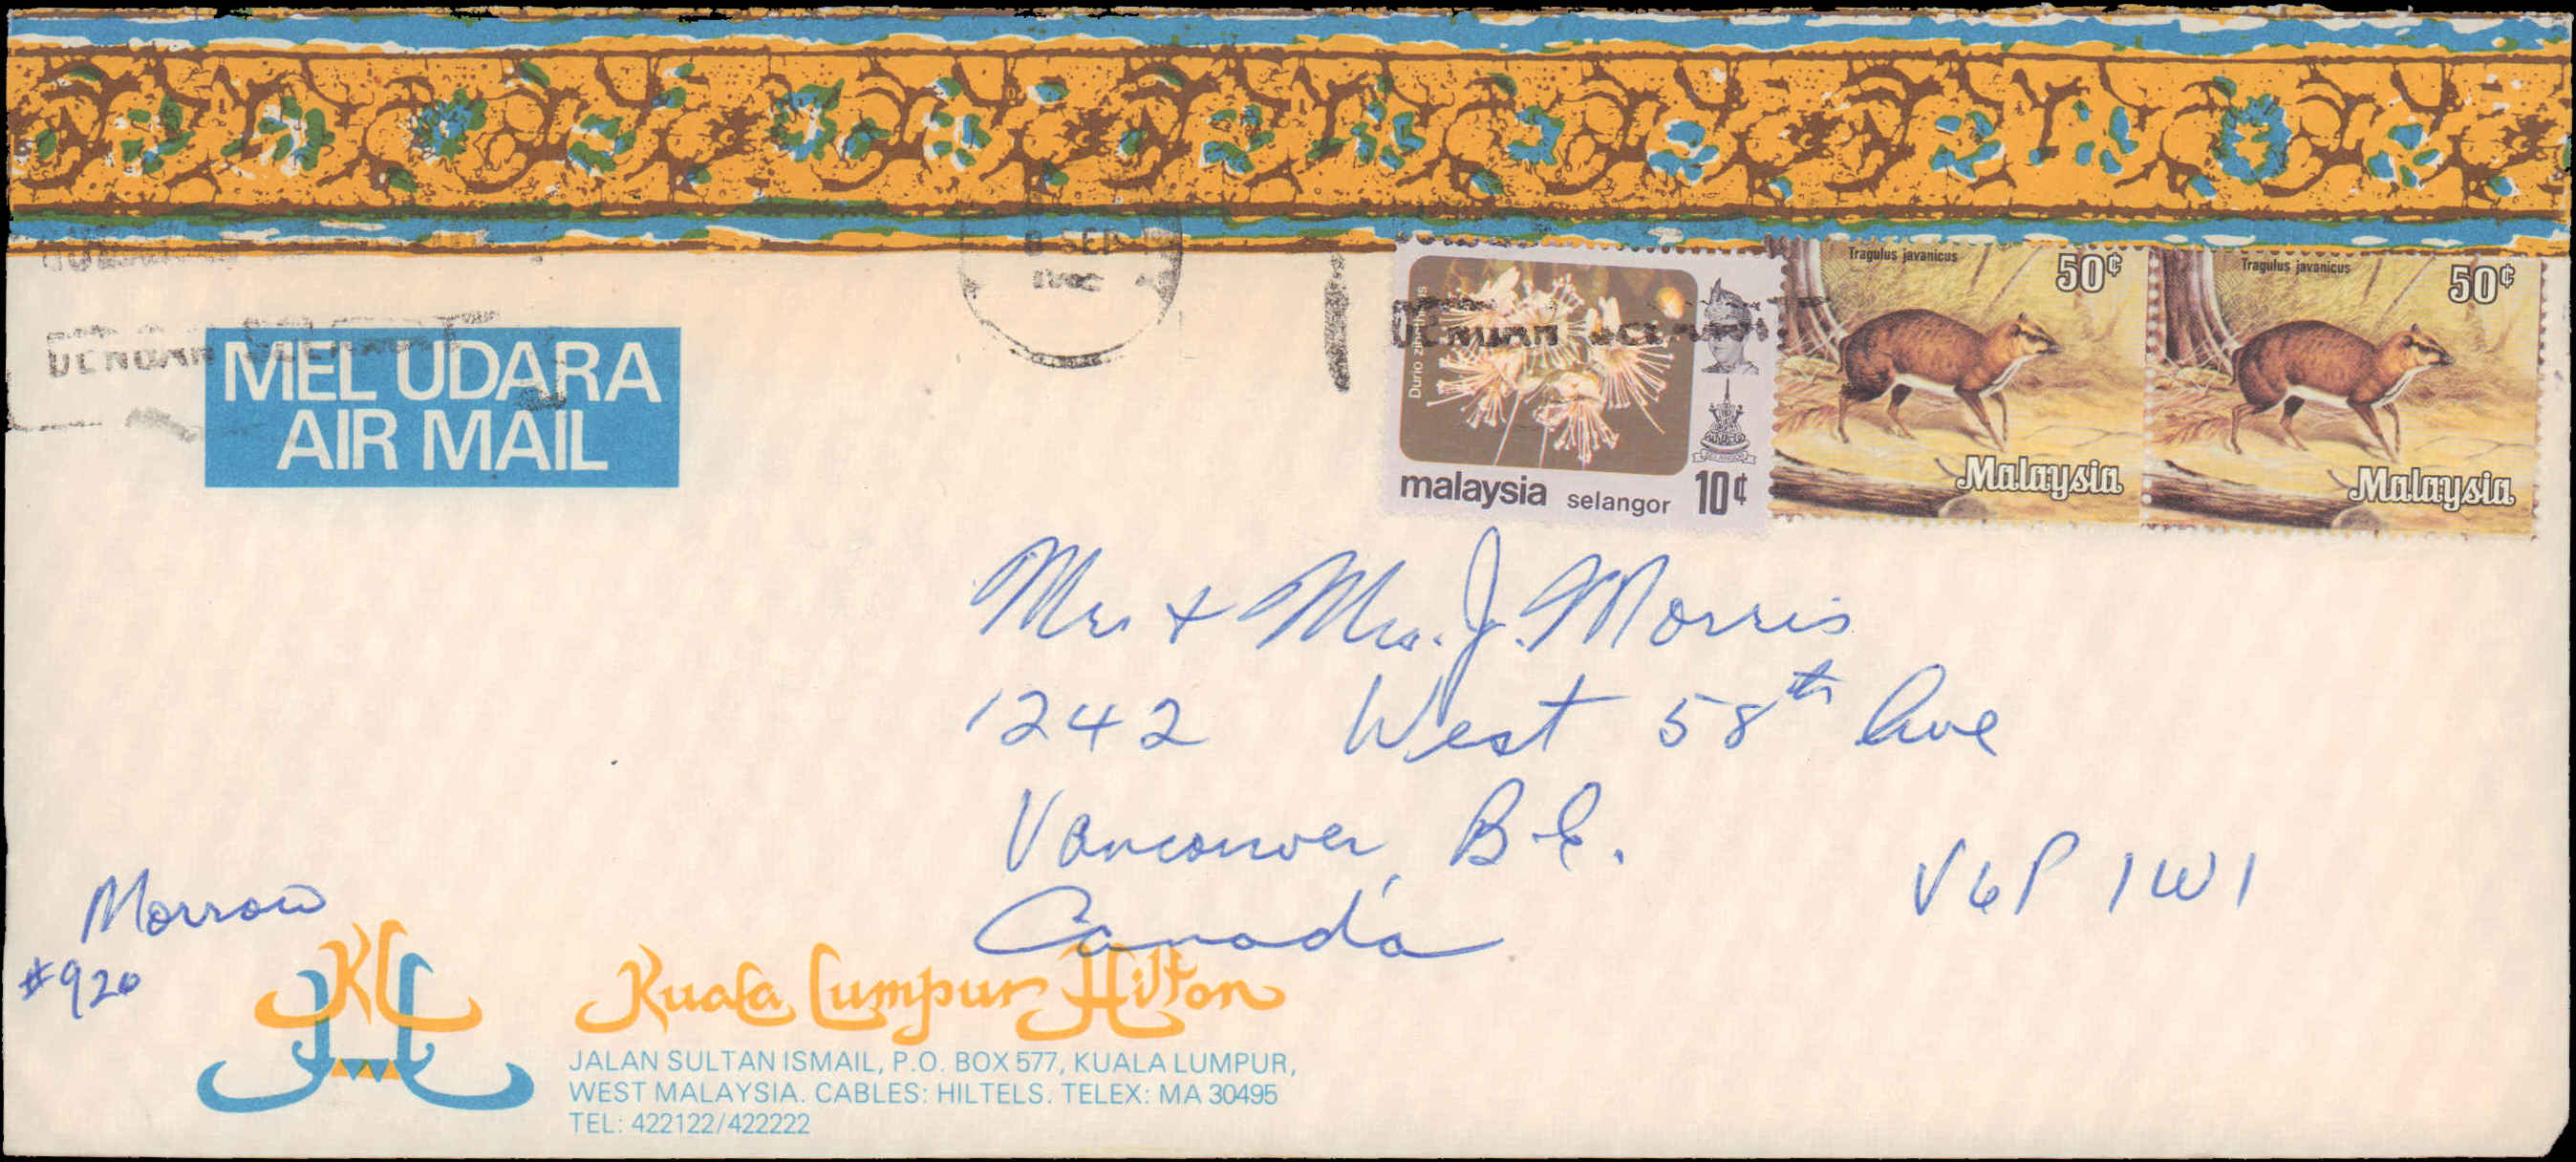 8 SEP
1982
DENGAN SEGERA
DENGAN
MEL UDARA
AIR MAIL
Durio zibethinus
malaysia selangor 10¢
SELANGOR
Tragulus javanicus
50¢
Malaysia
Tragulus javanicus
50¢
Malaysia
Mr. + Mrs. J. Morris
1242 West 58th Ave
Vancouver, B.C.
V6P 1W1
Canada
Morrow
#920
KL
H
Kuala Lumpur Hilton
JALAN SULTAN ISMAIL, P.O. BOX 577, KUALA LUMPUR,
WEST MALAYSIA. CABLES: HILTELS. TELEX: MA 30495
TEL: 422122/422222